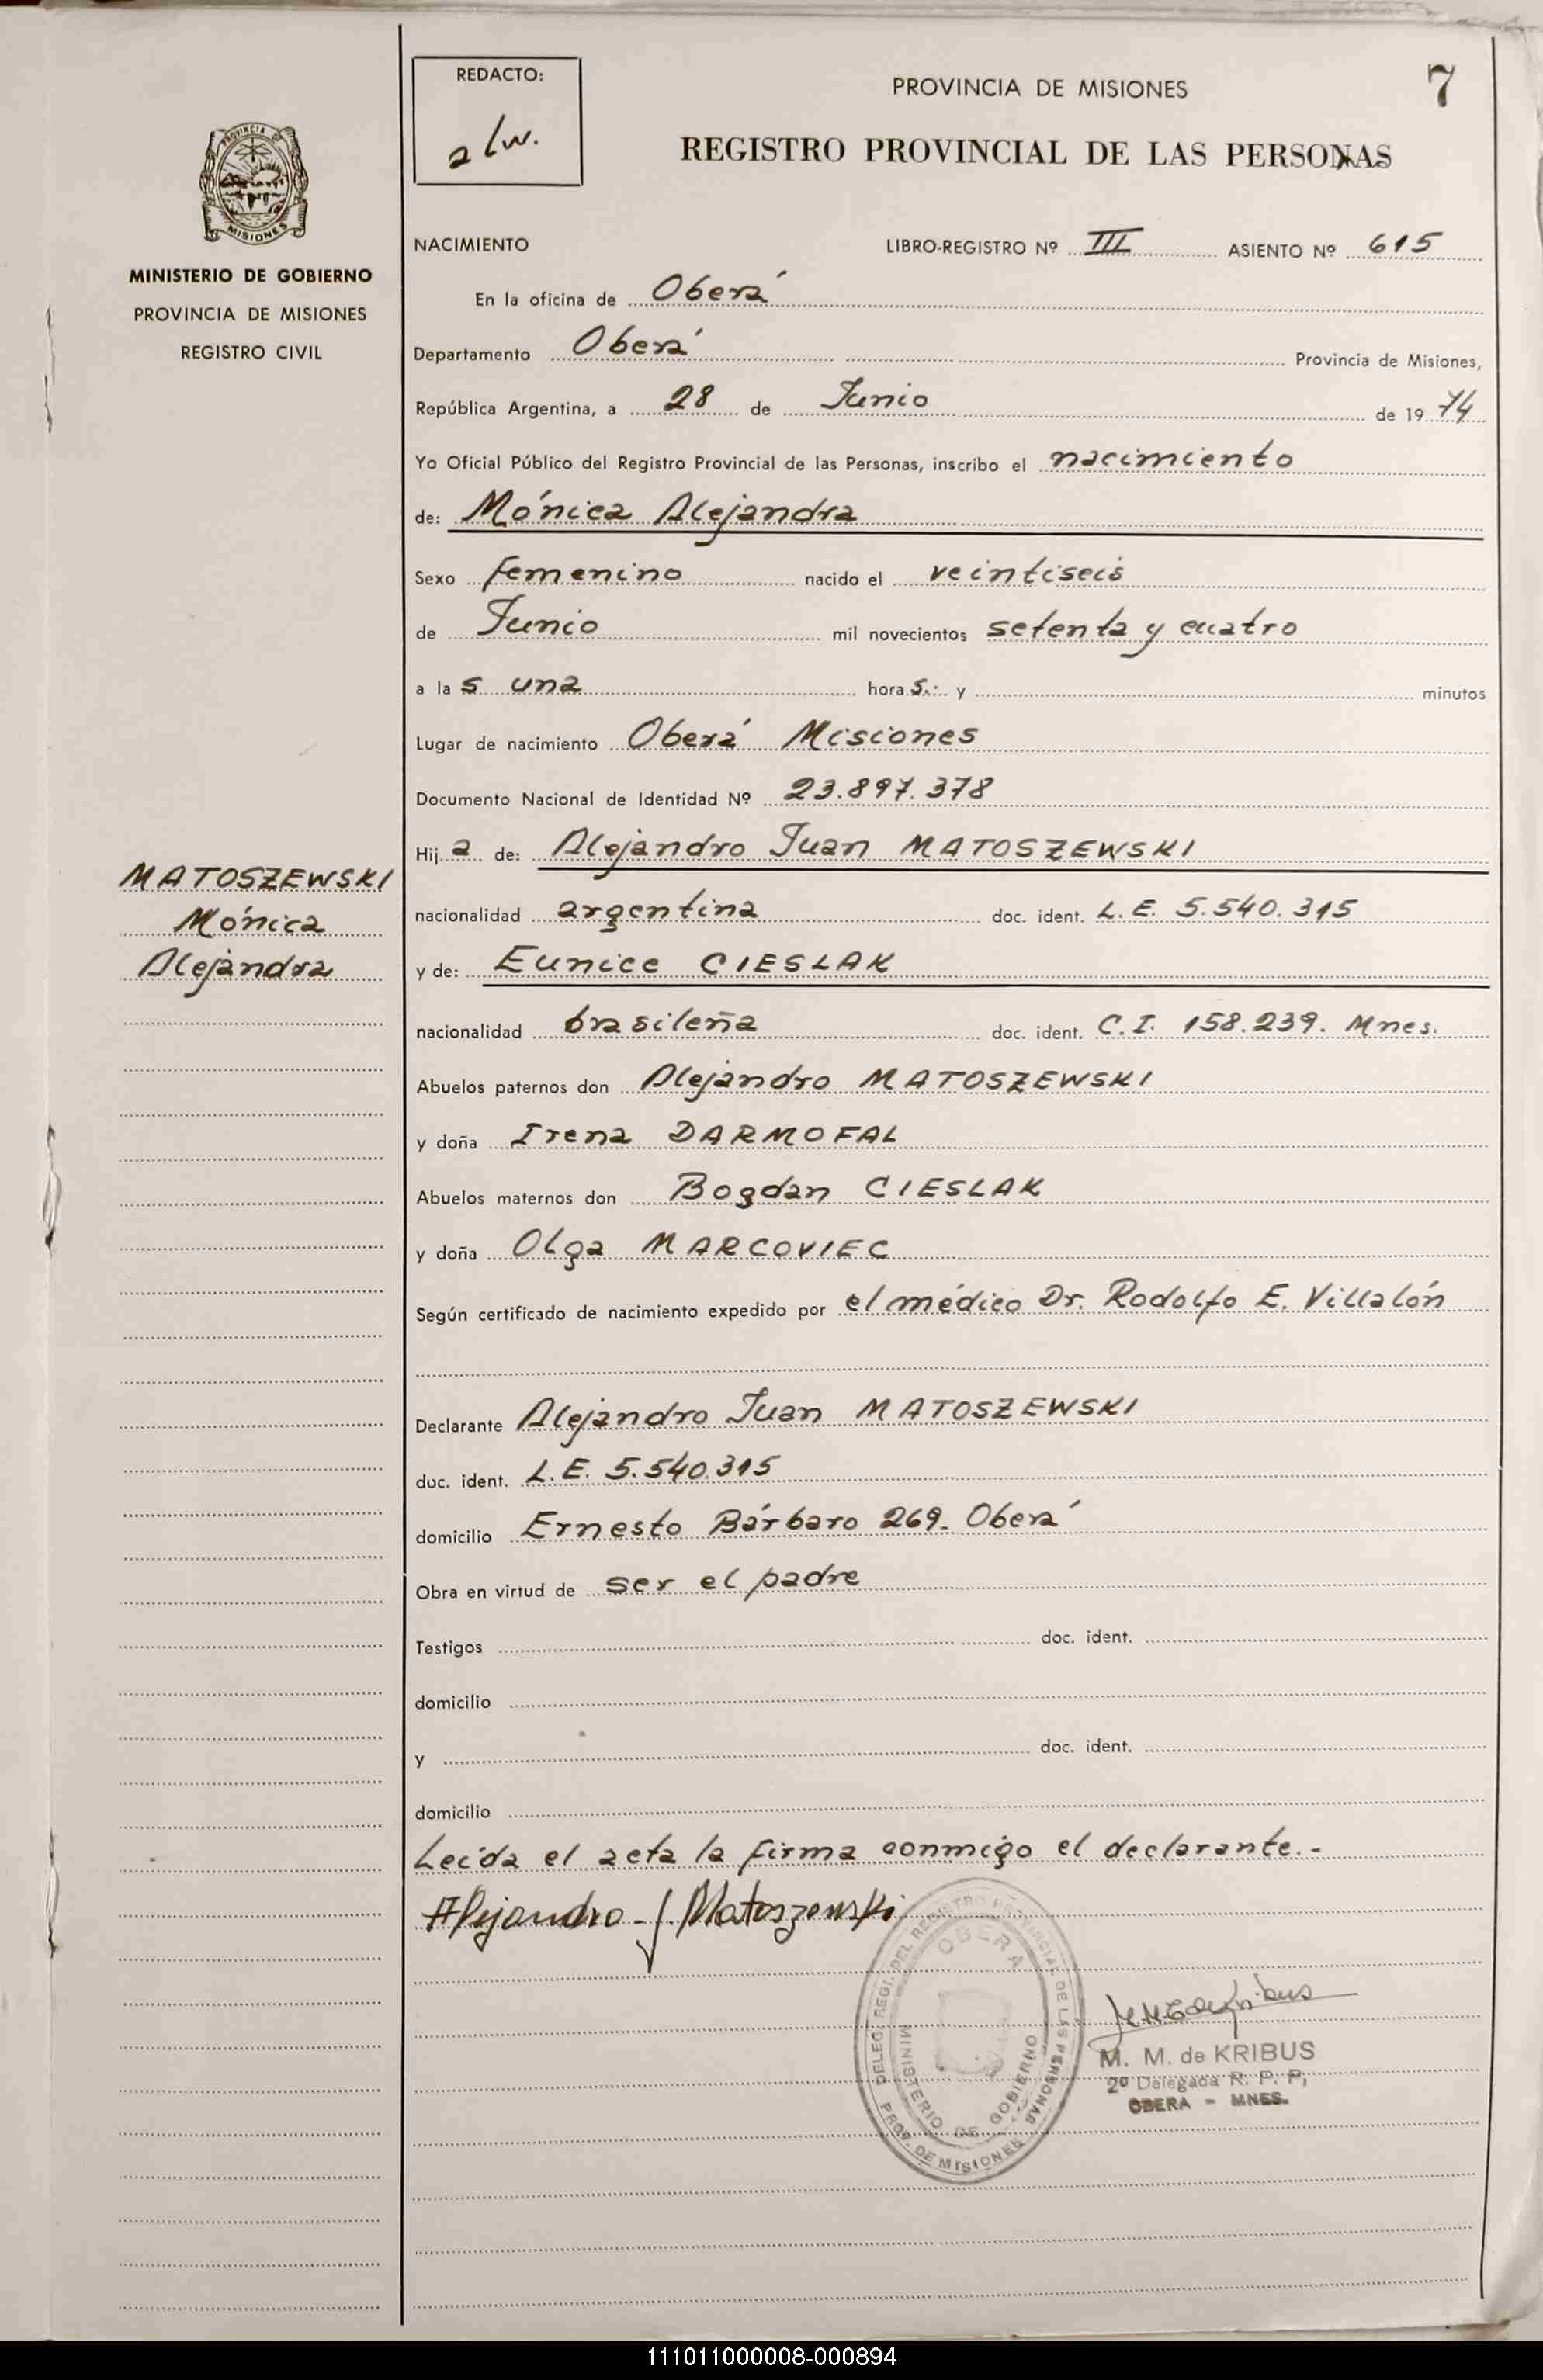 REDACTO:
alw.
PROVINCIA DE MISIONES
7
REGISTRO PROVINCIAL DE LAS PERSONAS
PROVINCIA DE
MISIONES
MINISTERIO DE GOBIERNO
PROVINCIA DE MISIONES
REGISTRO CIVIL
NACIMIENTO LIBRO-REGISTRO Nº III ASIENTO Nº 615
En la oficina de Oberá
Departamento Oberá Provincia de Misiones,
República Argentina, a 28 de Junio de 1974
Yo Oficial Público del Registro Provincial de las Personas, inscribo el nacimiento
de: Mónica Alejandra
Sexo femenino nacido el veintiseis
de Junio mil novecientos setenta y cuatro
a las una horas.. y minutos
Lugar de nacimiento Oberá Misiones
Documento Nacional de Identidad Nº 23.897.378
Hija de: Alejandro Juan MATOSZEWSKI
MATOSZEWSKI
Mónica
Alejandra
nacionalidad argentina doc. ident. L.E. 5.540.315
y de: Eunice CIESLAK
nacionalidad brasileña doc. ident. C.I. 158.239. Mnes.
Abuelos paternos don Alejandro MATOSZEWSKI
y doña Irena DARMOFAL
Abuelos maternos don Bogdan CIESLAK
y doña Olga MARCOVIEC
Según certificado de nacimiento expedido por el médico Dr. Rodolfo E. Villalón
Declarante Alejandro Juan MATOSZEWSKI
doc. ident. L.E. 5.540.315
domicilio Ernesto Bárbaro 269. Oberá
Obra en virtud de ser el padre
Testigos doc. ident.
domicilio
y doc. ident.
domicilio
Leída el acta la firma conmigo el declarante.-
Alejandro J. Matoszewski
DELEG. REGI. DEL REGISTRO PROVINCIAL DE LAS PERSONAS
OBERA
MINISTERIO DE GOBIERNO
PROV. DE MISIONES
M. M. de KRIBUS
2º Delegada R. P. P,
OBERA - MNES.
111011000008-000894